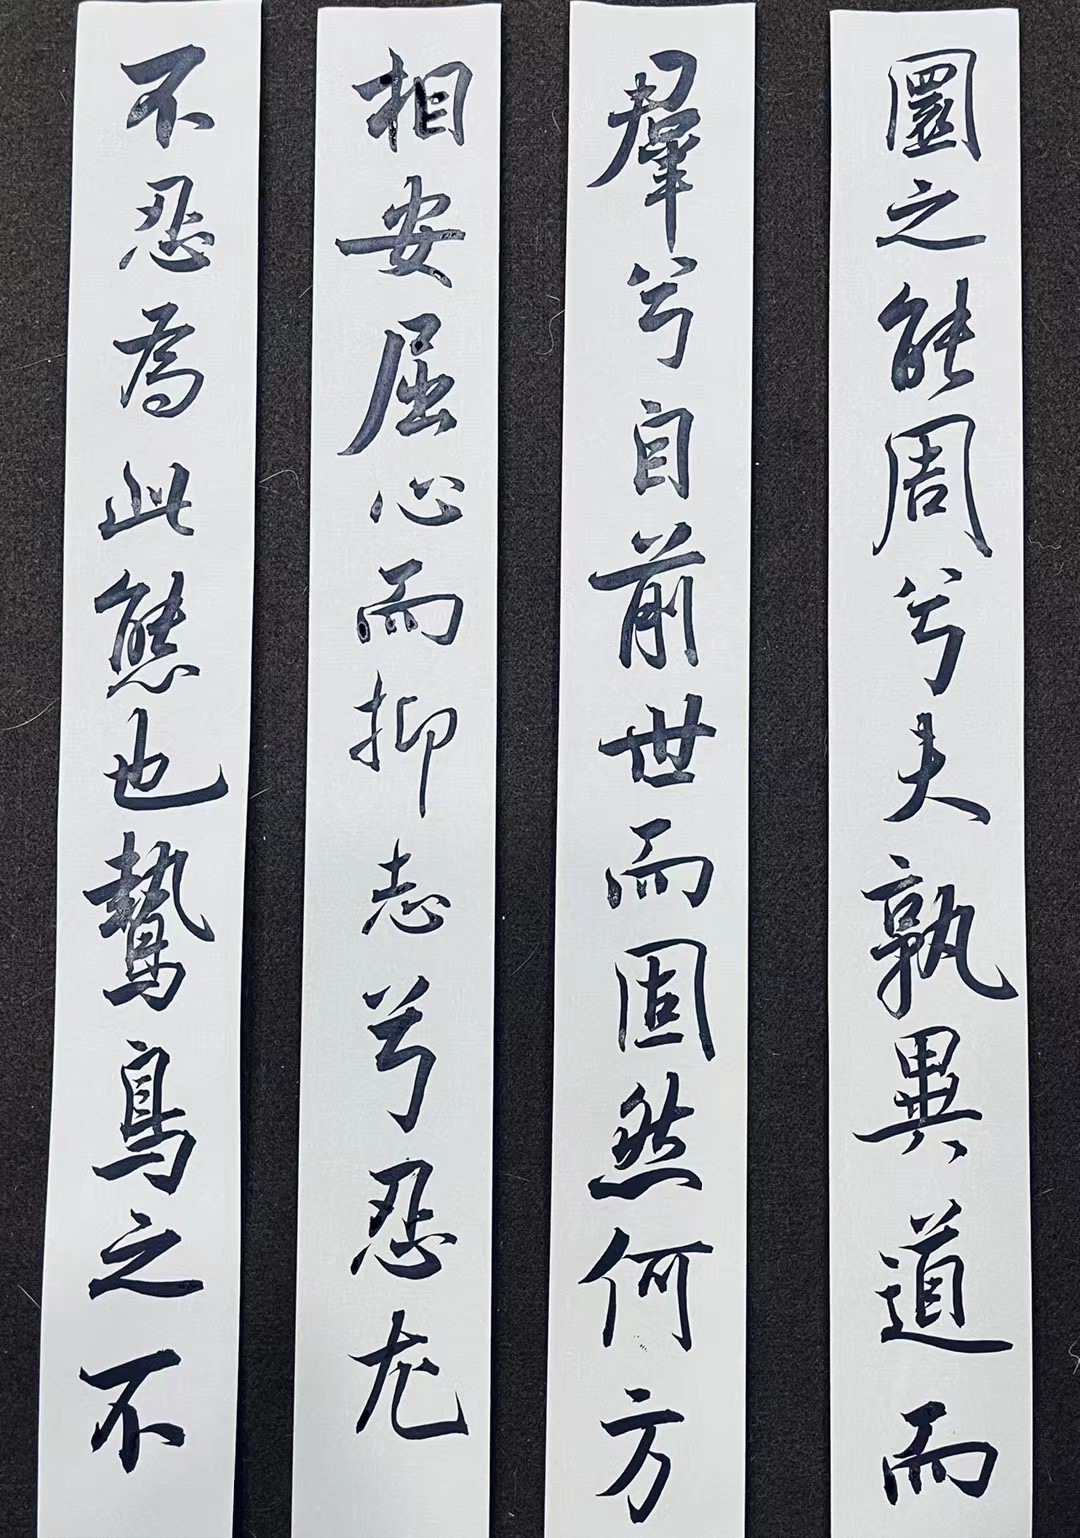 圜之能周兮夫孰異道而
羣兮自前世而固然何方
相安屈心而抑志兮忍尤
不忍為此態也鷙鳥之不